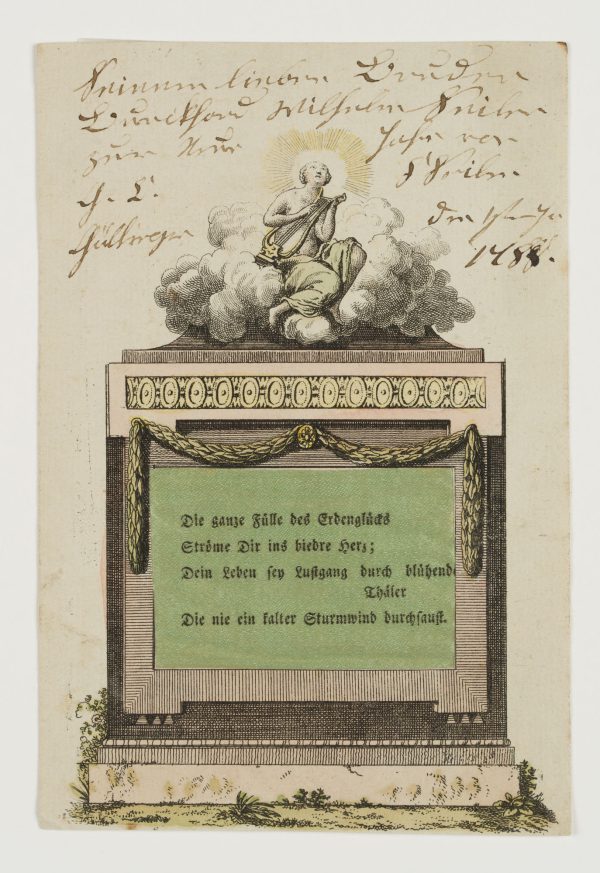 Seinem lieben Bruder
Wilhelm
zum Neue Jahr von
den 1
1788.
Die ganze Fülle des Erdenglücks
Ströme Dir ins biedre Herz;
Dein Leben sey Lustgang durch blühend
Thäler
Die nie ein kalter Sturmwind durchsaust.